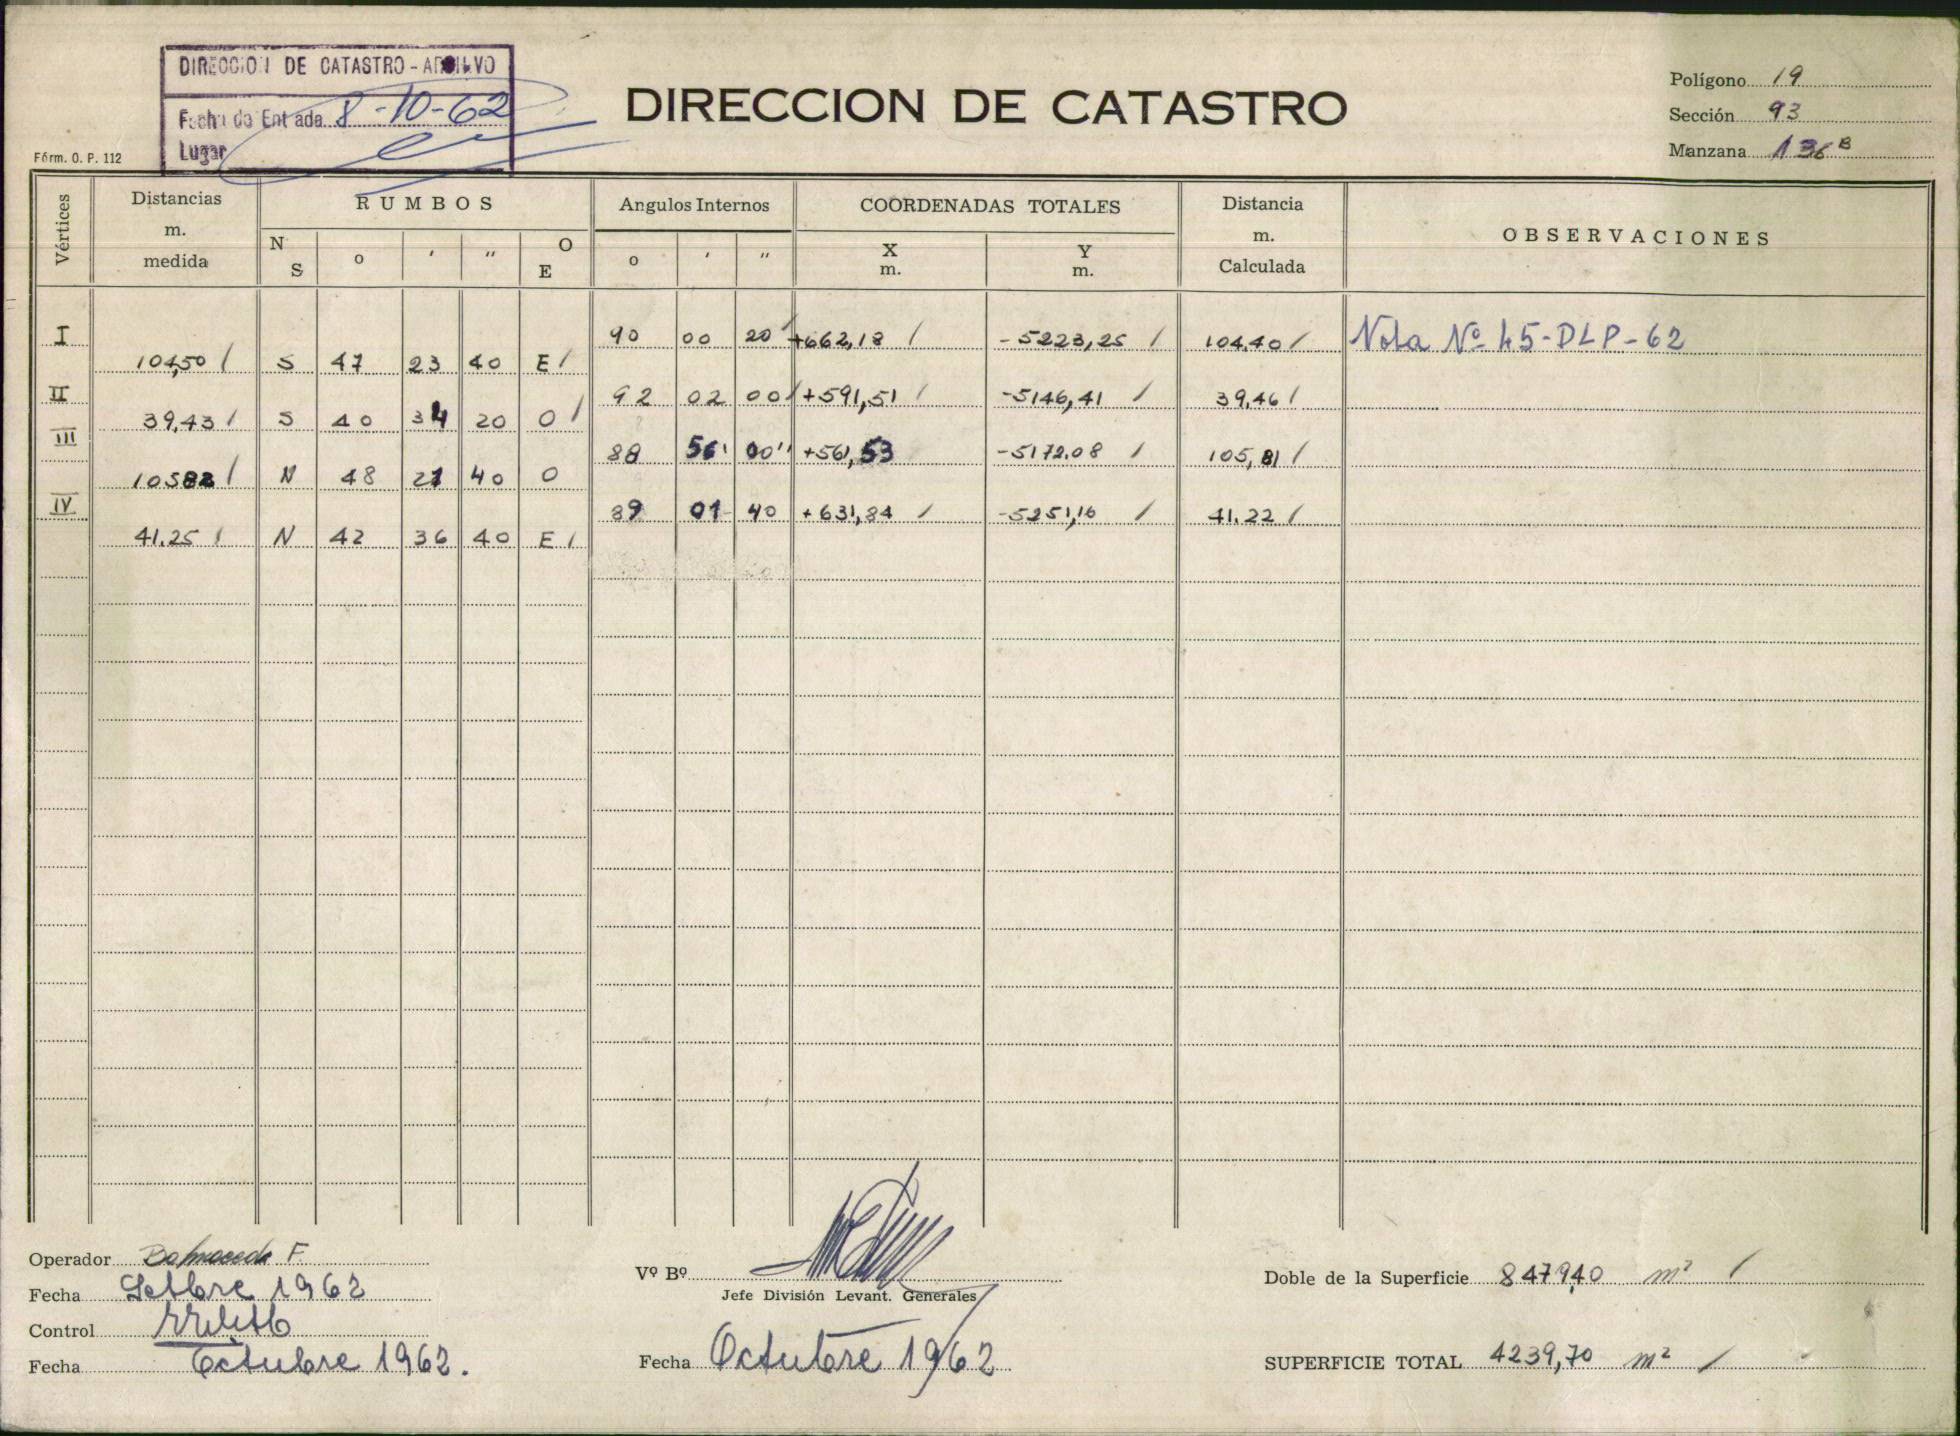 DIRECCION DE CATASTRO - ARCHIVO
Fecha de Entrada 8-10-62
Lugar
Fórm. O. P. 112
DIRECCION DE CATASTRO
Polígono 19
Sección 93
Manzana 136 B
Vértices
Distancias m. medida
RUMBOS
N S o ' '' O E
Angulos Internos
o ' ''
COORDENADAS TOTALES
X m. Y m.
Distancia m. Calculada
OBSERVACIONES
I 90 00 20 +662,18 / -5223,25 / 104,40 / Nota Nº 45-DLP-62
104,50 / S 47 23 40 E /
II 92 02 00 / +591,51 / -5146,41 / 39,46 /
39,43 / S 40 34 20 O /
III 88 56' 00'' +561,53 -5172,08 / 105,81 /
105,82 / N 48 21 40 O
IV 89 01 40 +631,84 / -5251,16 / 41.22 /
41.25 / N 42 36 40 E /
Operador Balmaceda F.
Fecha Setbre 1962
Control
Fecha Octubre 1962.
Vº Bº
Jefe División Levant. Generales
Fecha Octubre 1962
Doble de la Superficie 8479,40 m² /
SUPERFICIE TOTAL 4239,70 m² /